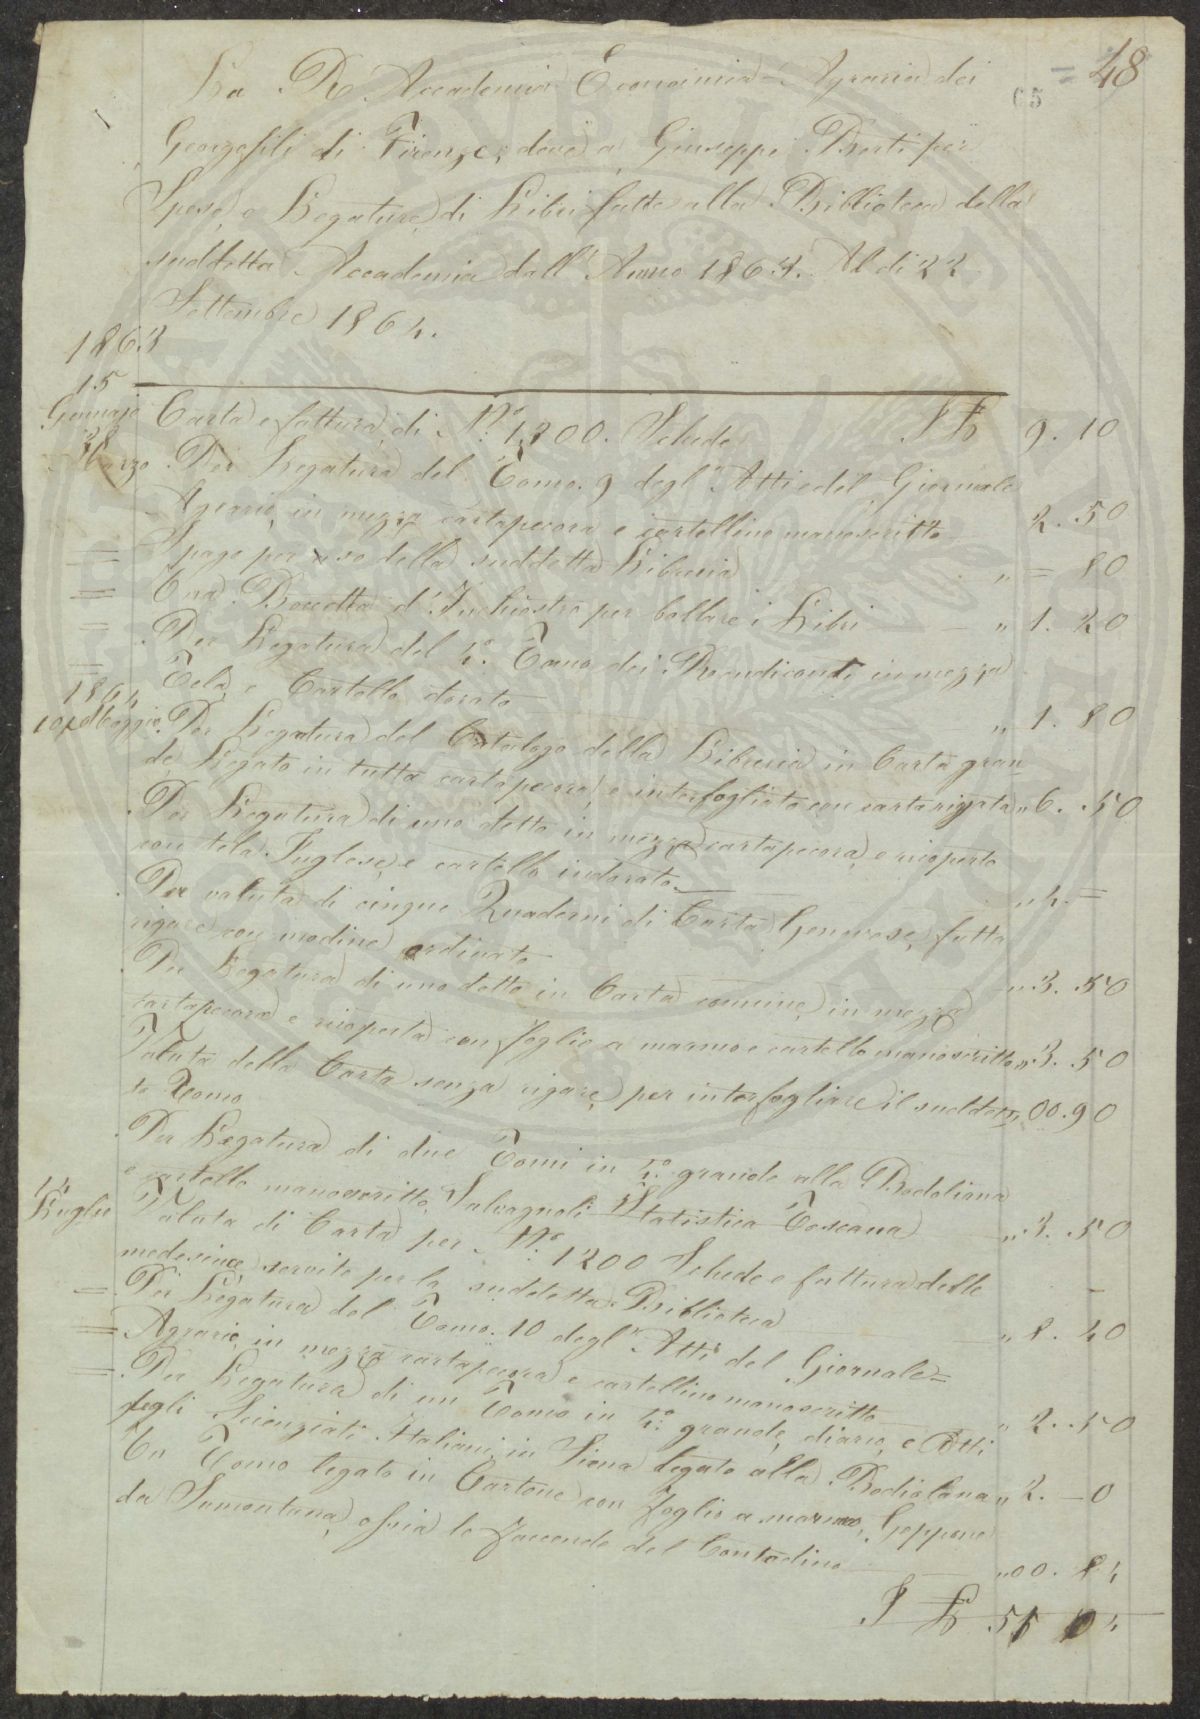 = 48
65
La R. Accademia Economica = Agraria dei
Georgofili di Firenze, deve a Giuseppe Berti per
Spese, e Legature, di Libri fatte alla Biblioteca della
suddetta Accademia dall' Anno 1863. Al dì 22
Settembre 1864.
1863
15
Gennajo Carta e fattura, di N.º 1,300. Schede £ 9. 10
28
Marzo Per Legatura del Tomo. 9 degl' Atti del Giornale
Agrario, in mezza cartapecora e cartellino manoscritto 2. 50
= Spago per uso della suddetta Libreria " = 80
= Una Boccetta d' Inchiostro per bollare i Libri " 1. 20
= Per Legatura del 4.º Tomo dei Rendiconti, in mezza
= Tela, e Cartello dorato " 1. 80
1864
10 Maggio Per Legatura del Catalogo della Libreria in Carta gran=
de, Legato in tutta cartapecora, e interfogliato con carta rigata " 6. 50
Per Legatura di uno detto in mezza cartapecora, e ricoperto
con tela Inglese, e cartello indorato " 4. =
Per valuta di cinque Quaderni di Carta Genovese, fatta
rigare con modine ordinato " 3. 50
Per Legatura di uno detto in Carta comune, in mezza
cartapecora e ricoperta con foglio a marmo e cartello manoscritto " 3. 50
Valuta della Carta senza rigare, per interfogliare il suddet=
to Tomo " 00. 90
Per Legatura di due Tomi in 4.º grande alla Bodoliana
e cartello manoscritto, Salvagnoli Statistica Toscana " 3. 50
14
Luglio Valuta di Carta per N.º 1200 Schede e fattura delle
medesime servite per la suddetta Biblioteca " 8. 40
= Per Legatura del Tomo. 10 degl' Atti del Giornale =
= Agrario, in mezza cartapecora e cartellino manoscritto " 2. 50
= Per Legatura di un Tomo in 4.º grande, diario, e Atti
degli Scienziati Italiani, in Siena legato alla Bodoliana " 2. — 0
Un Tomo legato in Cartone con foglio a marmo, Geppone
da Sumontana, ossia le faccende del Contadino " 00. 84
£ 51 04